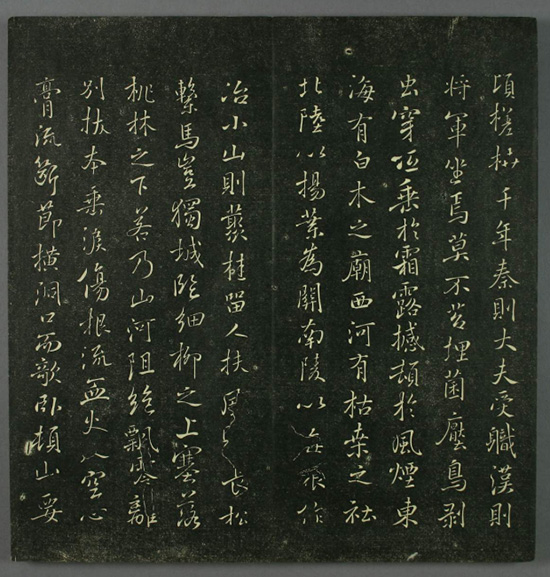 頃槎枿千年秦則大夫受職漢則
将軍坐焉莫不苔埋菌壓鳥剥
虫穿垂於霜露撼頓於風煙東
海有白木之廟西河有枯桑之社
北陸以揚葉為關南陵以梅根作
冶小山則叢桂留人扶風長松
繫馬豈獨城臨細柳之上塞落
桃林之下若乃山河阻絶飄零離
別拔本垂淚傷根流血火入空心
膏流断節橫洞口而敧臥頓山要